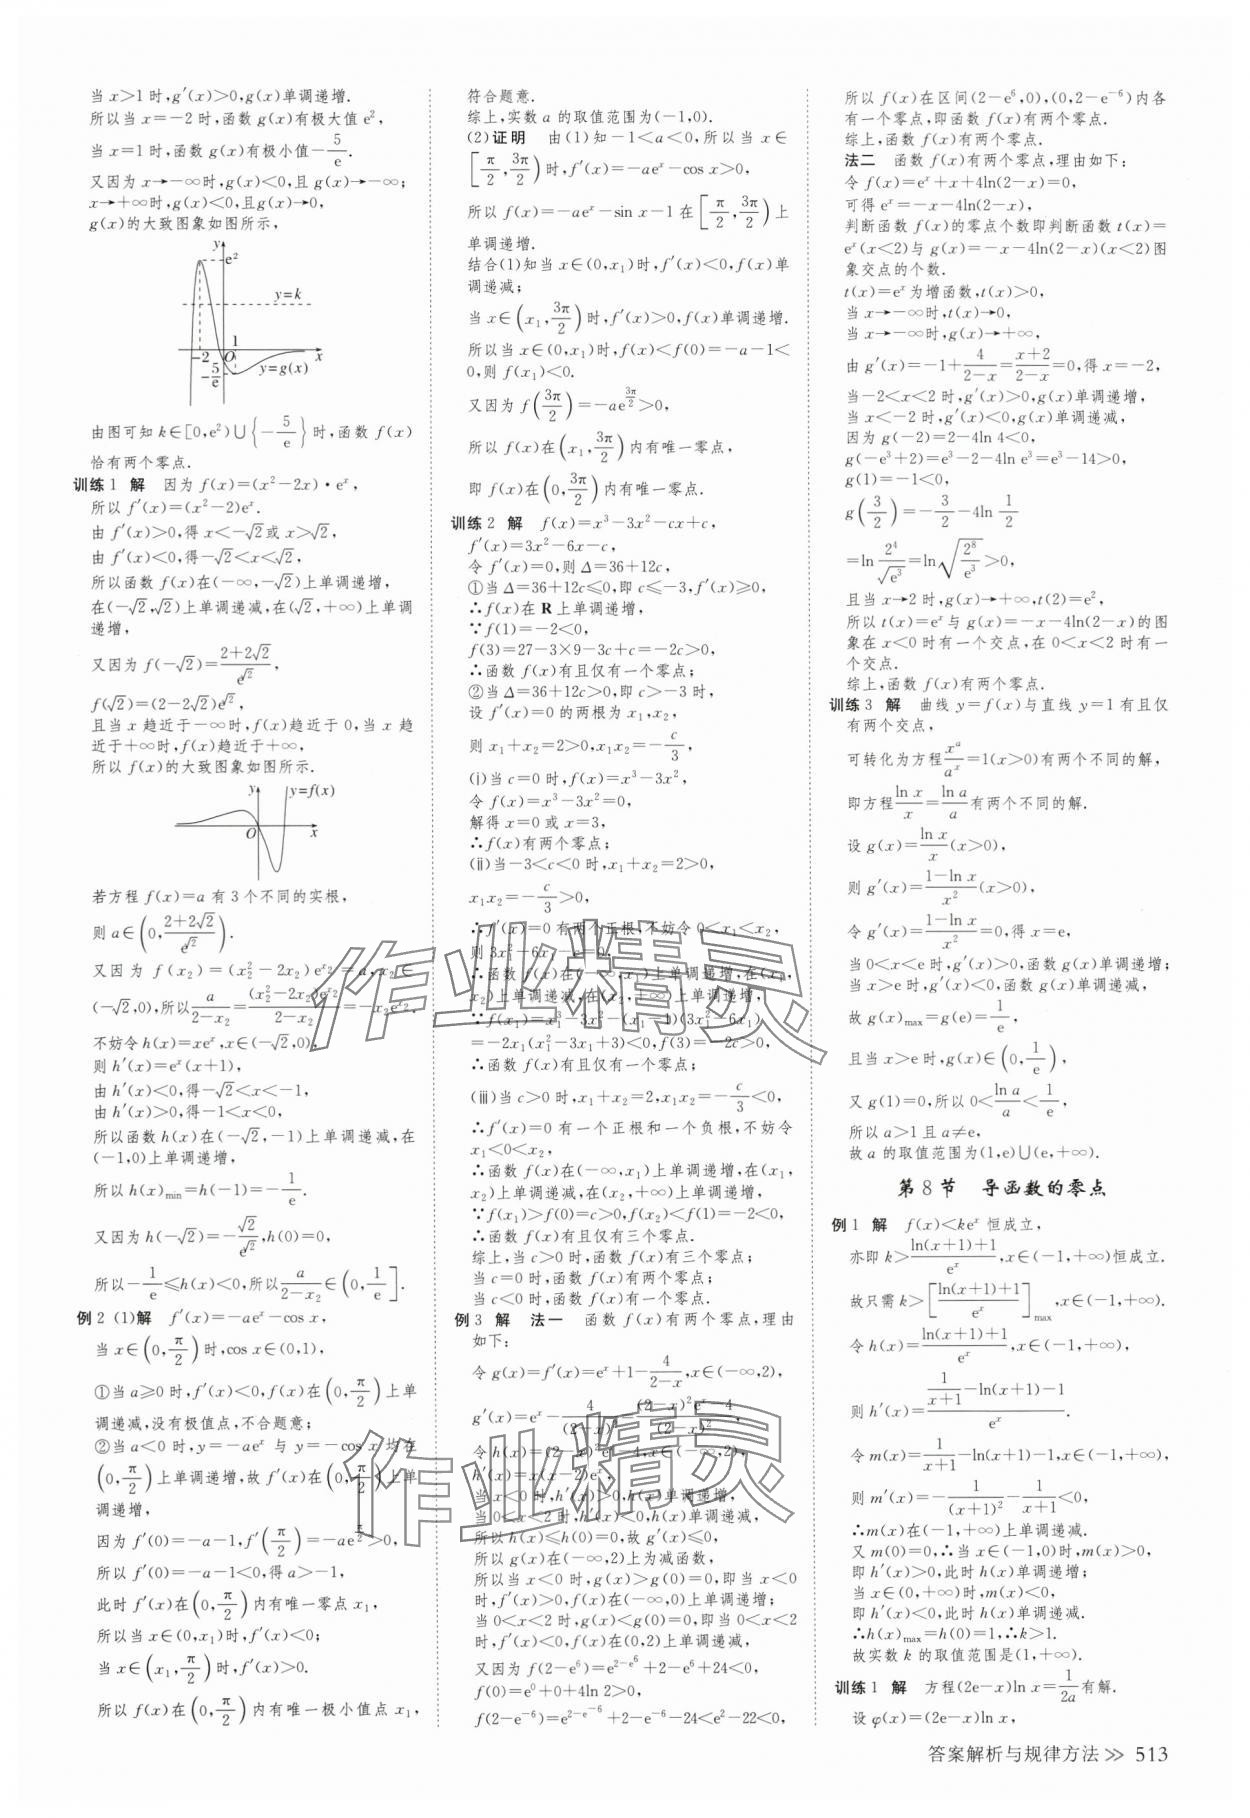 当 x>1 时,g′(x)>0,g(x)单调递增.
所以当 x=-2 时,函数 g(x)有极大值 e²,
当 x=1 时,函数 g(x)有极小值-5/e.
又因为 x→-∞时,g(x)<0,且 g(x)→-∞;
x→+∞时,g(x)<0,且g(x)→0,
g(x)的大致图象如图所示,
y
e²
y=k
-2 O 1 x
-5/e y=g(x)
由图可知 k∈[0,e²)∪{-5/e}时,函数 f(x)
恰有两个零点.
训练1 解 因为 f(x)=(x²-2x)·eˣ,
所以 f′(x)=(x²-2)eˣ.
由 f′(x)>0,得 x<-√2或 x>√2,
由 f′(x)<0,得-√2<x<√2,
所以函数 f(x)在(-∞,-√2)上单调递增,
在(-√2,√2)上单调递减,在(√2,+∞)上单调
递增,
又因为 f(-√2)=(2+2√2)/e^√2,
f(√2)=(2-2√2)e^√2,
且当 x 趋近于-∞时,f(x)趋近于 0,当 x 趋
近于+∞时,f(x)趋近于+∞,
所以 f(x)的大致图象如图所示.
y y=f(x)
O x
若方程 f(x)=a 有 3 个不同的实根,
则 a∈(0,(2+2√2)/e^√2).
又因为 f(x₂)=(x₂²-2x₂)e^x₂=a,x₂∈
(-√2,0),所以a/(2-x₂)=(x₂²-2x₂)e^x₂/(2-x₂)=-x₂e^x₂.
不妨令 h(x)=xeˣ,x∈(-√2,0),
则 h′(x)=eˣ(x+1),
由 h′(x)<0,得-√2<x<-1,
由 h′(x)>0,得-1<x<0,
所以函数 h(x)在(-√2,-1)上单调递减,在
(-1,0)上单调递增,
所以 h(x)min=h(-1)=-1/e.
又因为 h(-√2)=-√2/e^√2,h(0)=0,
所以-1/e≤h(x)<0,所以a/(2-x₂)∈(0,1/e].
例 2 (1)解 f′(x)=-aeˣ-cos x,
当 x∈(0,π/2)时,cos x∈(0,1),
①当 a≥0 时,f′(x)<0,f(x)在(0,π/2)上单
调递减,没有极值点,不合题意;
②当 a<0 时,y=-aeˣ 与 y=-cos x 均在
(0,π/2)上单调递增,故 f′(x)在(0,π/2)上单
调递增,
因为 f′(0)=-a-1,f′(π/2)=-ae^(π/2)>0,
所以 f′(0)=-a-1<0,得 a>-1,
此时 f′(x)在(0,π/2)内有唯一零点 x₁,
所以当 x∈(0,x₁)时,f′(x)<0;
当 x∈(x₁,π/2)时,f′(x)>0.
所以 f(x)在(0,π/2)内有唯一极小值点 x₁,
符合题意.
综上,实数 a 的取值范围为(-1,0).
(2)证明 由(1)知-1<a<0,所以当 x∈
[π/2,3π/2)时,f′(x)=-aeˣ-cos x>0,
所以 f(x)=-aeˣ-sin x-1 在[π/2,3π/2)上
单调递增.
结合(1)知当 x∈(0,x₁)时,f′(x)<0,f(x)单
调递减;
当 x∈(x₁,3π/2)时,f′(x)>0,f(x)单调递增.
所以当 x∈(0,x₁)时,f(x)<f(0)=-a-1<
0,则 f(x₁)<0.
又因为 f(3π/2)=-ae^(3π/2)>0,
所以 f(x)在(x₁,3π/2)内有唯一零点,
即 f(x)在(0,3π/2)内有唯一零点.
训练 2 解 f(x)=x³-3x²-cx+c,
f′(x)=3x²-6x-c,
令 f′(x)=0,则 Δ=36+12c,
①当 Δ=36+12c≤0,即 c≤-3,f′(x)≥0,
∴f(x)在 R 上单调递增,
∵f(1)=-2<0,
f(3)=27-3×9-3c+c=-2c>0,
∴函数 f(x)有且仅有一个零点;
②当 Δ=36+12c>0,即 c>-3 时,
设 f′(x)=0 的两根为 x₁,x₂,
则 x₁+x₂=2>0,x₁x₂=-c/3,
(ⅰ)当 c=0 时,f(x)=x³-3x²,
令 f(x)=x³-3x²=0,
解得 x=0 或 x=3,
∴f(x)有两个零点;
(ⅱ)当-3<c<0 时,x₁+x₂=2>0,
x₁x₂=-c/3>0,
∴f′(x)=0 有两个正根,不妨令 0<x₁<x₂,
则 3x₁²-6x₁-c=0,
∴函数 f(x)在(-∞,x₁)上单调递增,在(x₁,
x₂)上单调递减,在(x₂,+∞)上单调递增,
∵f(x₁)=x₁³-3x₁²-(x₁-1)(3x₁²-6x₁)
=-2x₁(x₁²-3x₁+3)<0,f(3)=-2c>0,
∴函数 f(x)有且仅有一个零点;
(ⅲ)当 c>0 时,x₁+x₂=2,x₁x₂=-c/3<0,
∴f′(x)=0 有一个正根和一个负根,不妨令
x₁<0<x₂,
∴函数 f(x)在(-∞,x₁)上单调递增,在(x₁,
x₂)上单调递减,在(x₂,+∞)上单调递增,
∵f(x₁)>f(0)=c>0,f(x₂)<f(1)=-2<0,
∴函数 f(x)有且仅有三个零点.
综上,当 c>0 时,函数 f(x)有三个零点;
当 c=0 时,函数 f(x)有两个零点;
当 c<0 时,函数 f(x)有一个零点.
例 3 解 法一 函数 f(x)有两个零点,理由
如下:
令 g(x)=f′(x)=eˣ+1-4/(2-x),x∈(-∞,2),
g′(x)=eˣ-4/(2-x)²=((2-x)²eˣ-4)/(2-x)²,
令 h(x)=(2-x)²eˣ-4,x∈(-∞,2),
h′(x)=x(x-2)eˣ,
当 x<0 时,h′(x)>0,h(x)单调递增,
当 0<x<2 时,h′(x)<0,h(x)单调递减,
所以 h(x)≤h(0)=0,故 g′(x)≤0,
所以 g(x)在(-∞,2)上为减函数,
所以当 x<0 时,g(x)>g(0)=0,即当 x<0
时,f′(x)>0,f(x)在(-∞,0)上单调递增;
当 0<x<2 时,g(x)<g(0)=0,即当 0<x<2
时,f′(x)<0,f(x)在(0,2)上单调递减,
又因为 f(2-e⁶)=e^(2-e⁶)+2-e⁶+24<0,
f(0)=e⁰+0+4ln 2>0,
f(2-e⁻⁶)=e^(2-e⁻⁶)+2-e⁻⁶-24<e²-22<0,
所以 f(x)在区间(2-e⁶,0),(0,2-e⁻⁶)内各
有一个零点,即函数 f(x)有两个零点.
综上,函数 f(x)有两个零点.
法二 函数 f(x)有两个零点,理由如下:
令 f(x)=eˣ+x+4ln(2-x)=0,
可得 eˣ=-x-4ln(2-x),
判断函数 f(x)的零点个数即判断函数 t(x)=
eˣ(x<2)与 g(x)=-x-4ln(2-x)(x<2)图
象交点的个数.
t(x)=eˣ为增函数,t(x)>0,
当 x→-∞时,t(x)→0,
当 x→-∞时,g(x)→+∞,
由 g′(x)=-1+4/(2-x)=(x+2)/(2-x)=0,得 x=-2,
当-2<x<2 时,g′(x)>0,g(x)单调递增,
当 x<-2 时,g′(x)<0,g(x)单调递减,
因为 g(-2)=2-4ln 4<0,
g(-e³+2)=e³-2-4ln e³=e³-14>0,
g(1)=-1<0,
g(3/2)=-3/2-4ln 1/2
=ln 2⁴/√e³=ln√(2⁸/e³)>0,
且当 x→2 时,g(x)→+∞,t(2)=e²,
所以 t(x)=eˣ与 g(x)=-x-4ln(2-x)的图
象在 x<0 时有一个交点,在 0<x<2 时有一
个交点.
综上,函数 f(x)有两个零点.
训练 3 解 曲线 y=f(x)与直线 y=1 有且仅
有两个交点,
可转化为方程xᵃ/aˣ=1(x>0)有两个不同的解,
即方程ln x/x=ln a/a有两个不同的解.
设 g(x)=ln x/x(x>0),
则 g′(x)=(1-ln x)/x²(x>0),
令 g′(x)=(1-ln x)/x²=0,得 x=e,
当 0<x<e 时,g′(x)>0,函数 g(x)单调递增;
当 x>e 时,g′(x)<0,函数 g(x)单调递减,
故 g(x)max=g(e)=1/e,
且当 x>e 时,g(x)∈(0,1/e),
又 g(1)=0,所以 0<ln a/a<1/e,
所以 a>1 且 a≠e,
故 a 的取值范围为(1,e)∪(e,+∞).
第 8 节 导函数的零点
例 1 解 f(x)<keˣ 恒成立,
亦即 k>(ln(x+1)+1)/eˣ,x∈(-1,+∞)恒成立.
故只需 k>[(ln(x+1)+1)/eˣ]max,x∈(-1,+∞).
令 h(x)=(ln(x+1)+1)/eˣ,x∈(-1,+∞),
则 h′(x)=(1/(x+1)-ln(x+1)-1)/eˣ.
令 m(x)=1/(x+1)-ln(x+1)-1,x∈(-1,+∞),
则 m′(x)=-1/(x+1)²-1/(x+1)<0,
∴m(x)在(-1,+∞)上单调递减.
又 m(0)=0,∴当 x∈(-1,0)时,m(x)>0,
即 h′(x)>0,此时 h(x)单调递增;
当 x∈(0,+∞)时,m(x)<0,
即 h′(x)<0,此时 h(x)单调递减.
∴h(x)max=h(0)=1,∴k>1.
故实数 k 的取值范围是(1,+∞).
训练 1 解 方程(2e-x)ln x=1/2a有解.
设 φ(x)=(2e-x)ln x,
作业精灵
作业精灵
答案解析与规律方法 >> 513